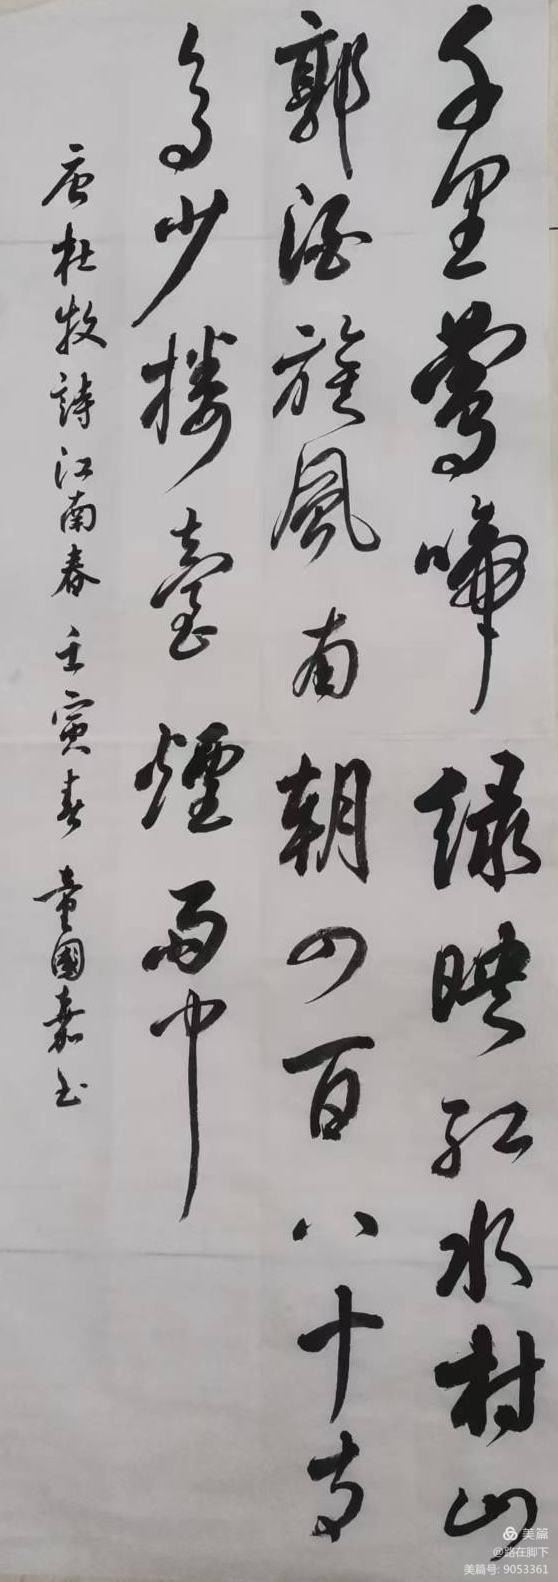 千里鶯啼綠映紅水村山
郭酒旗風南朝四百八十寺
多少樓臺煙雨中
唐杜牧詩江南春壬寅春童國嘉书
美篇
@路在脚下
美篇号: 9053361